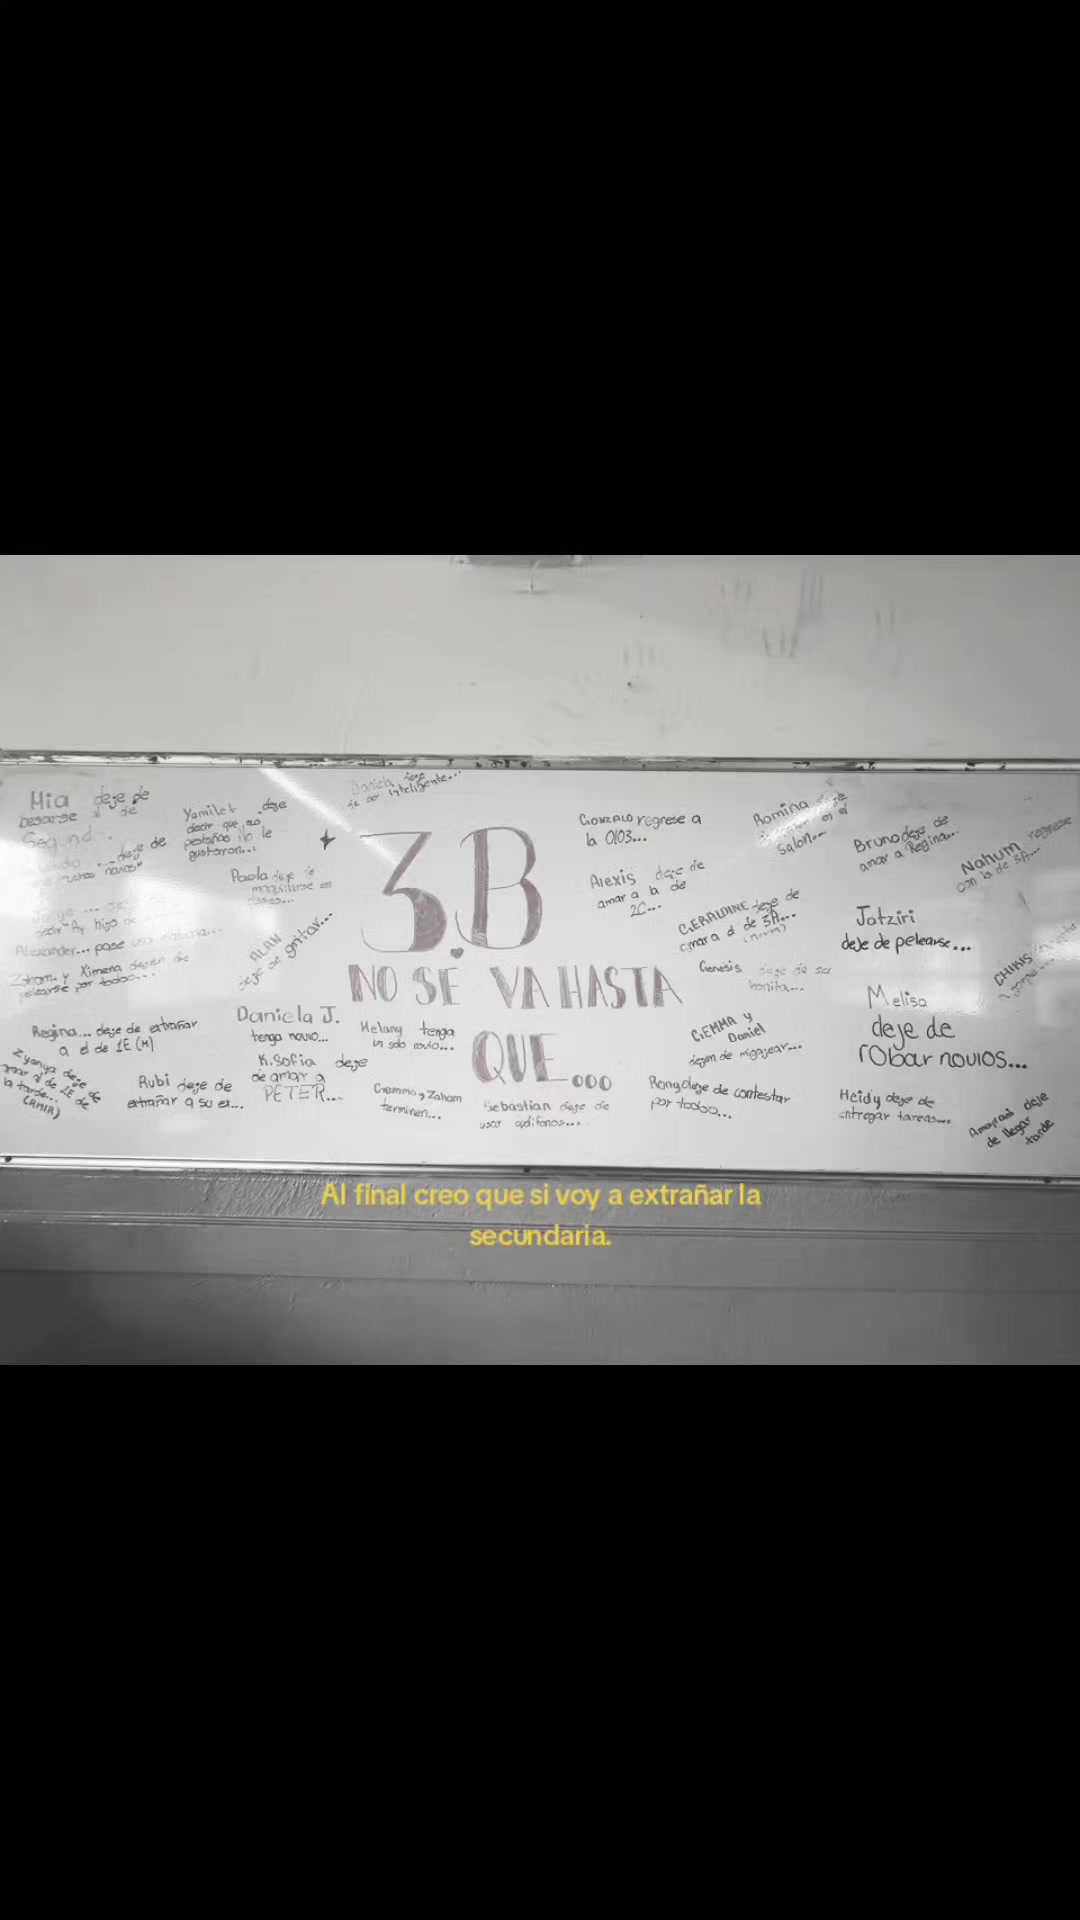 Daniela deje
de ser inteligente...
Mia deje de
besarse al de
Segund...
deje de
Yamilet deje
decir que
pestañas no le
gustaron...
Paola deje de
maquillarse en
Jorge ...
decir "Ay hijo de
Alexander... pase una
Zaham y Ximena dejen de
pelearse por todoo...
ALAN
deje de gritar...
3.B
NO SE VA HASTA
QUE...
Regina... deje de extrañar
a el de 1E (M)
Zyanya deje de
amar al de 1E de
la tarde...
Rubi deje de
extrañar a su ex...
Daniela J.
tenga novio...
K. Sofia deje
de amar a
PETER...
Helany tenga
un solo novio...
Gemma y Zaham
terminen...
Sebastian deje de
usar audifonos...
GONZALO regrese a
la 0103...
Alexis deje de
amar a la de
2C...
Romina deje
en el
salon...
Bruno deje de
amar a Regina...
Nahum regrese
con la de 3A...
GERALDINE deje de
amar a el de 3A...
Jatziri
deje de pelearse...
CHIKIS
Genesis deje de ser
bonita...
Melisa
deje de
robar novios...
GEMMA y
Daniel
dejen de migajear...
Rony deje de contestar
por todoo...
Heidy deje de
entregar tareas...
deje
de llegar
tarde
Al final creo que si voy a extrañar la
secundaria.